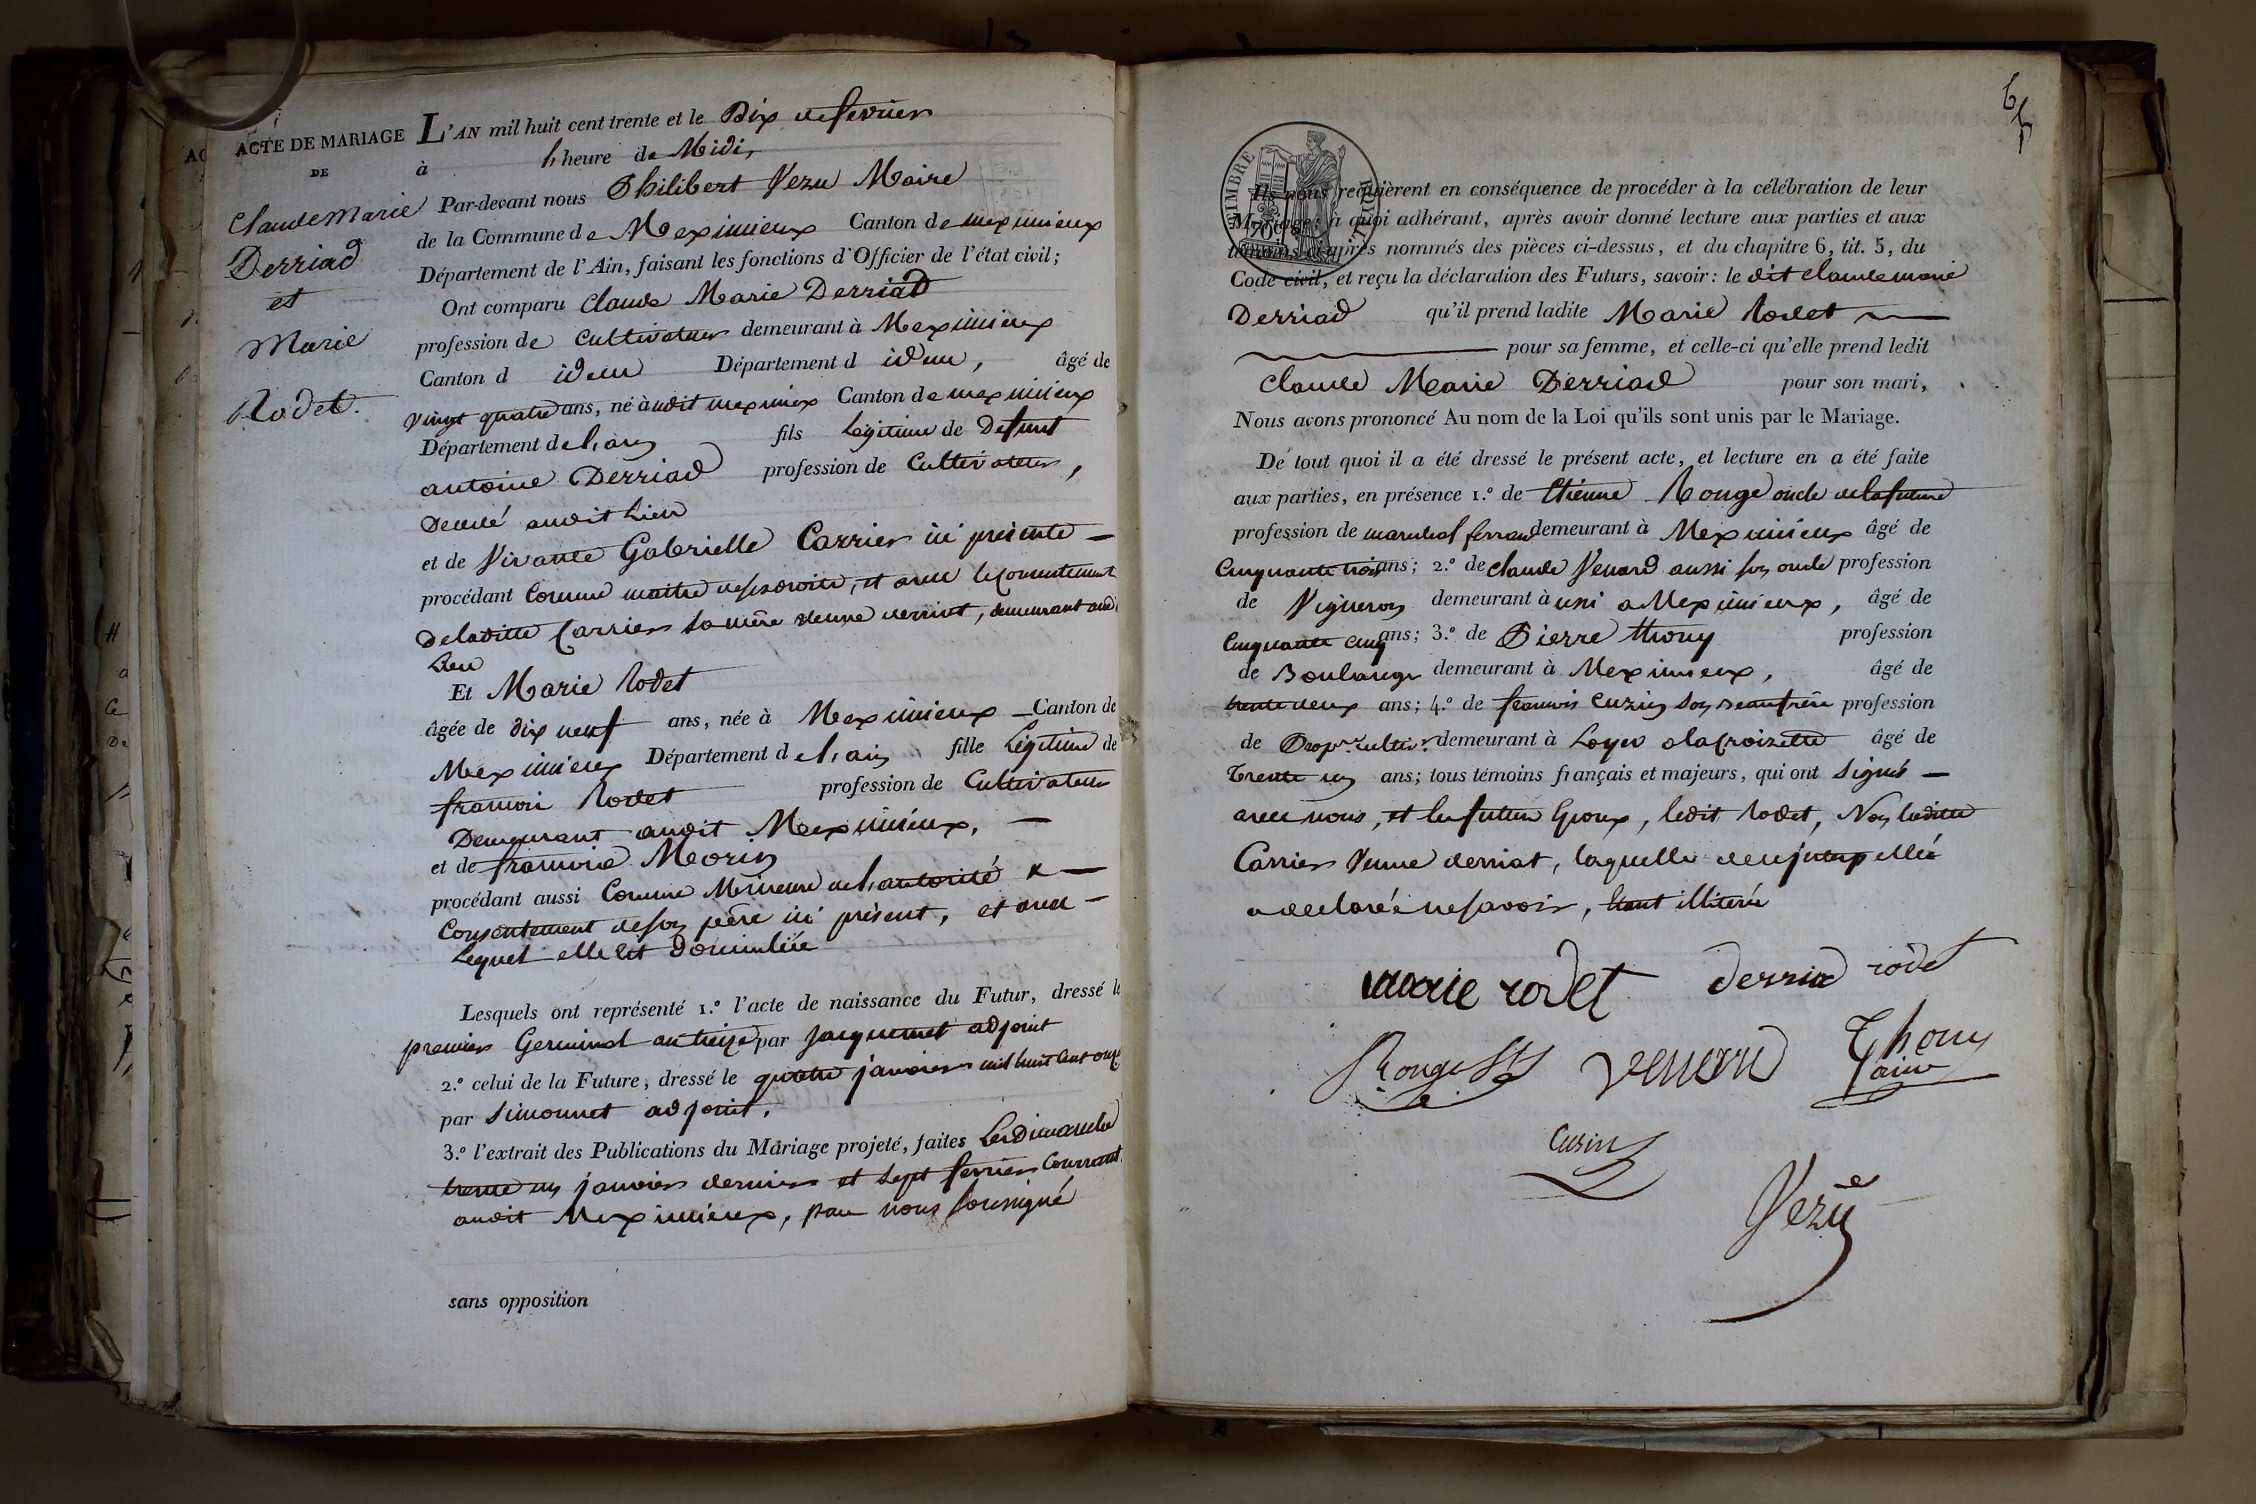 ACTE DE MARIAGE
DE
Claude Marie
Derriad
et
Marie
Rodet.
L'AN mil huit cent trente et le Dix de fevrier
à l'heure de Midi,
Par-devant nous Philibert Vezu Maire
de la Commune de Meximieux Canton de meximieux
Département de l'Ain, faisant les fonctions d'Officier de l'état civil;
Ont comparu Claude Marie Derriad
profession de Cultivateur demeurant à Meximieux
Canton d idem Département d idem, âgé de
vingt quatre ans, né à udit meximieux Canton de meximieux
Département de l'ain fils légitime de Defunt
antoine Derriad profession de Cultivateur,
Decedé audit Lieu
et de Vivante Gabrielle Carrier ici présente —
procédant Comme maitre de ses droits, et avec le Consentement
De ladite Carrier sa mère veuve derriat, demeurant audit
Lieu
Et Marie Rodet
âgée de dix neuf ans, née à Meximieux — Canton de
Meximieux Département d el'ain fille Légitime de
francois Rodet profession de Cultivateur
Demeurant audit Meximieux, —
et de francoise Morin
procédant aussi Comme Mineure de l'autorité & —
Consentement de son père ici présent, et avec —
Lequel elle est Domiciliée
Lesquels ont représenté 1.º l'acte de naissance du Futur, dressé le
premier Germinal an treize par Jacquemet adjoint
2.º celui de la Future, dressé le quatre janvier mil huit cent onze
par Simonnet adjoint,
3.º l'extrait des Publications du Mariage projeté, faites Les Dimanche
trente un janvier dernier et sept fevrier Courrant
audit Meximieux, par nous soussigné
sans opposition
TIMBRE ROYAL
70 c
Ils nous requièrent en conséquence de procéder à la célébration de leur
Mariage; à quoi adhérant, après avoir donné lecture aux parties et aux
témoins ci-après nommés des pièces ci-dessus, et du chapitre 6, tit. 5, du
Code civil, et reçu la déclaration des Futurs, savoir: le dit Claude marie
Derriad qu'il prend ladite Marie Rodet
pour sa femme, et celle-ci qu'elle prend ledit
Claude Marie Derriad pour son mari,
Nous avons prononcé Au nom de la Loi qu'ils sont unis par le Mariage.
De tout quoi il a été dressé le présent acte, et lecture en a été faite
aux parties, en présence 1.º de Etienne Rouge oncle de la future
profession de marechal ferrand demeurant à Meximieux âgé de
Cinquante trois ans; 2.º de claude Venard aussi son oncle profession
de Vigneron demeurant à ussi a Meximieux, âgé de
Cinquante cinq ans; 3.º de Pierre Thouy profession
de Boulanger demeurant à Meximieux, âgé de
trente deux ans; 4.º de francois Cuzin son Beaufrère profession
de Propre. cultiv. demeurant à Loyes a la Croizette âgé de
Trente un ans; tous témoins français et majeurs, qui ont signés —
avec nous, et les futurs Epoux, ledit Rodet, Non ladite
Carrier Veuve derriat, laquelle de ce interpellée
a declarée ne savoir, Etant illitérée
marie rodet derriad rodet
Rouge venard Thouy
aine
Cusin
Vezu